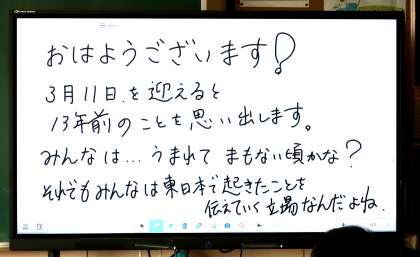 おはようございます!
3月11日を迎えると
13年前のことを思い出します。
みんなは…うまれてまもない頃かな?
それでもみんなは東日本で起きたことを
伝えていく立場なんだよね.